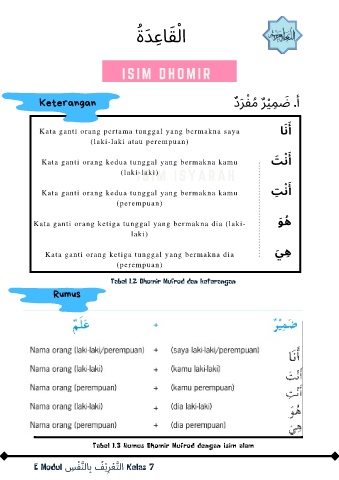 الْقَاعِدَةُ
ISIM DHOMIR
Keterangan
أ. ضَمِيْرٌ مُفْرَدٌ
Kata ganti orang pertama tunggal yang bermakna saya
(laki-laki atau perempuan)
أَنَا
Kata ganti orang kedua tunggal yang bermakna kamu
(laki-laki)
أَنْتَ
ISIM ISYARAH
Kata ganti orang kedua tunggal yang bermakna kamu
(perempuan)
أَنْتِ
Kata ganti orang ketiga tunggal yang bermakna dia (laki-
laki)
هُوَ
Kata ganti orang ketiga tunggal yang bermakna dia
(perempuan)
هِيَ
Tabel 1.2 Dhomir Mufrod dan keterangan
Rumus
عَلَمٌ + ضَمِيْرٌ
Nama orang (laki-laki/perempuan) + (saya laki-laki/perempuan) أَنَا
Nama orang (laki-laki) + (kamu laki-laki) أَنْتَ
Nama orang (perempuan) + (kamu perempuan) أَنْتِ
Nama orang (laki-laki) + (dia laki-laki) هُوَ
Nama orang (perempuan) + (dia perempuan) هِيَ
Tabel 1.3 Rumus Dhomir Mufrod dengan isim alam
E Modul التَّعْرِيْفُ بِالنَّفْسِ Kelas 7